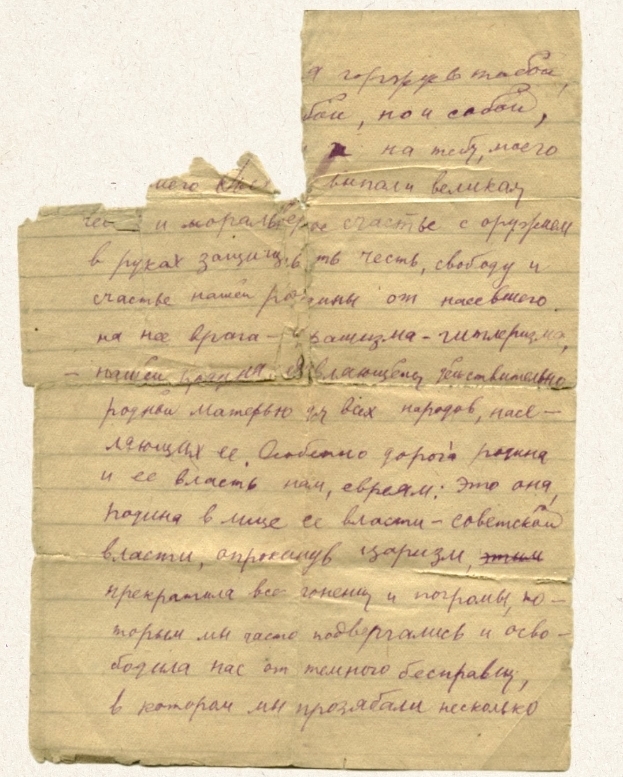 я горжусь тобой,
бой, но и собой,
на тебя, моего
моего выпали великая
честь и моральное счастье с оружием
в руках защищать честь, свободу и
счастье нашей родины от насевшего
на нее врага – фашизма – гитлеризма,
– нашей являющейся действительно
родной матерью для всех народов, насе–
ляющих ее. Особенно дорога родина
и ее власть нам, евреям: Это она,
родина в лице ее власти – советской
власти, опрокинув царизм,
прекратила все гонения и погромы, ко–
торым мы часто подвергались и осво–
бодила нас от темного бесправия,
в котором мы прозябали несколько